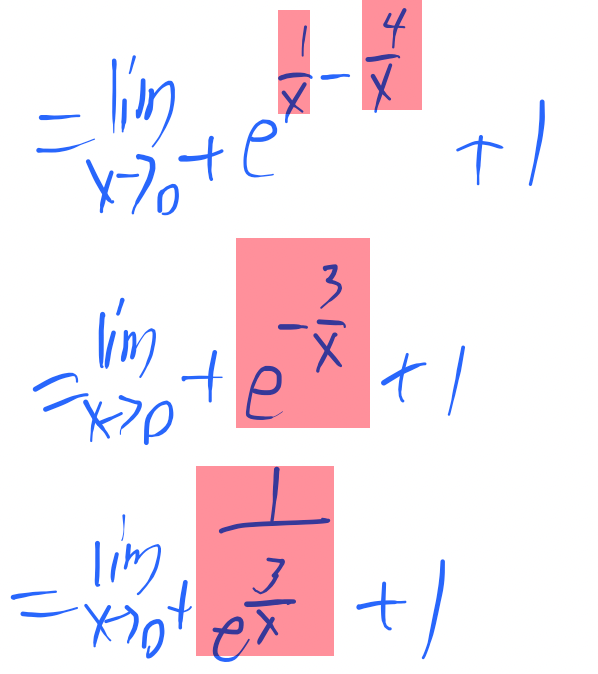 = lim x→0+ e^(1/x - 4/x) + 1
= lim x→0+ e^(-3/x) + 1
= lim x→0+ 1/e^(3/x) + 1